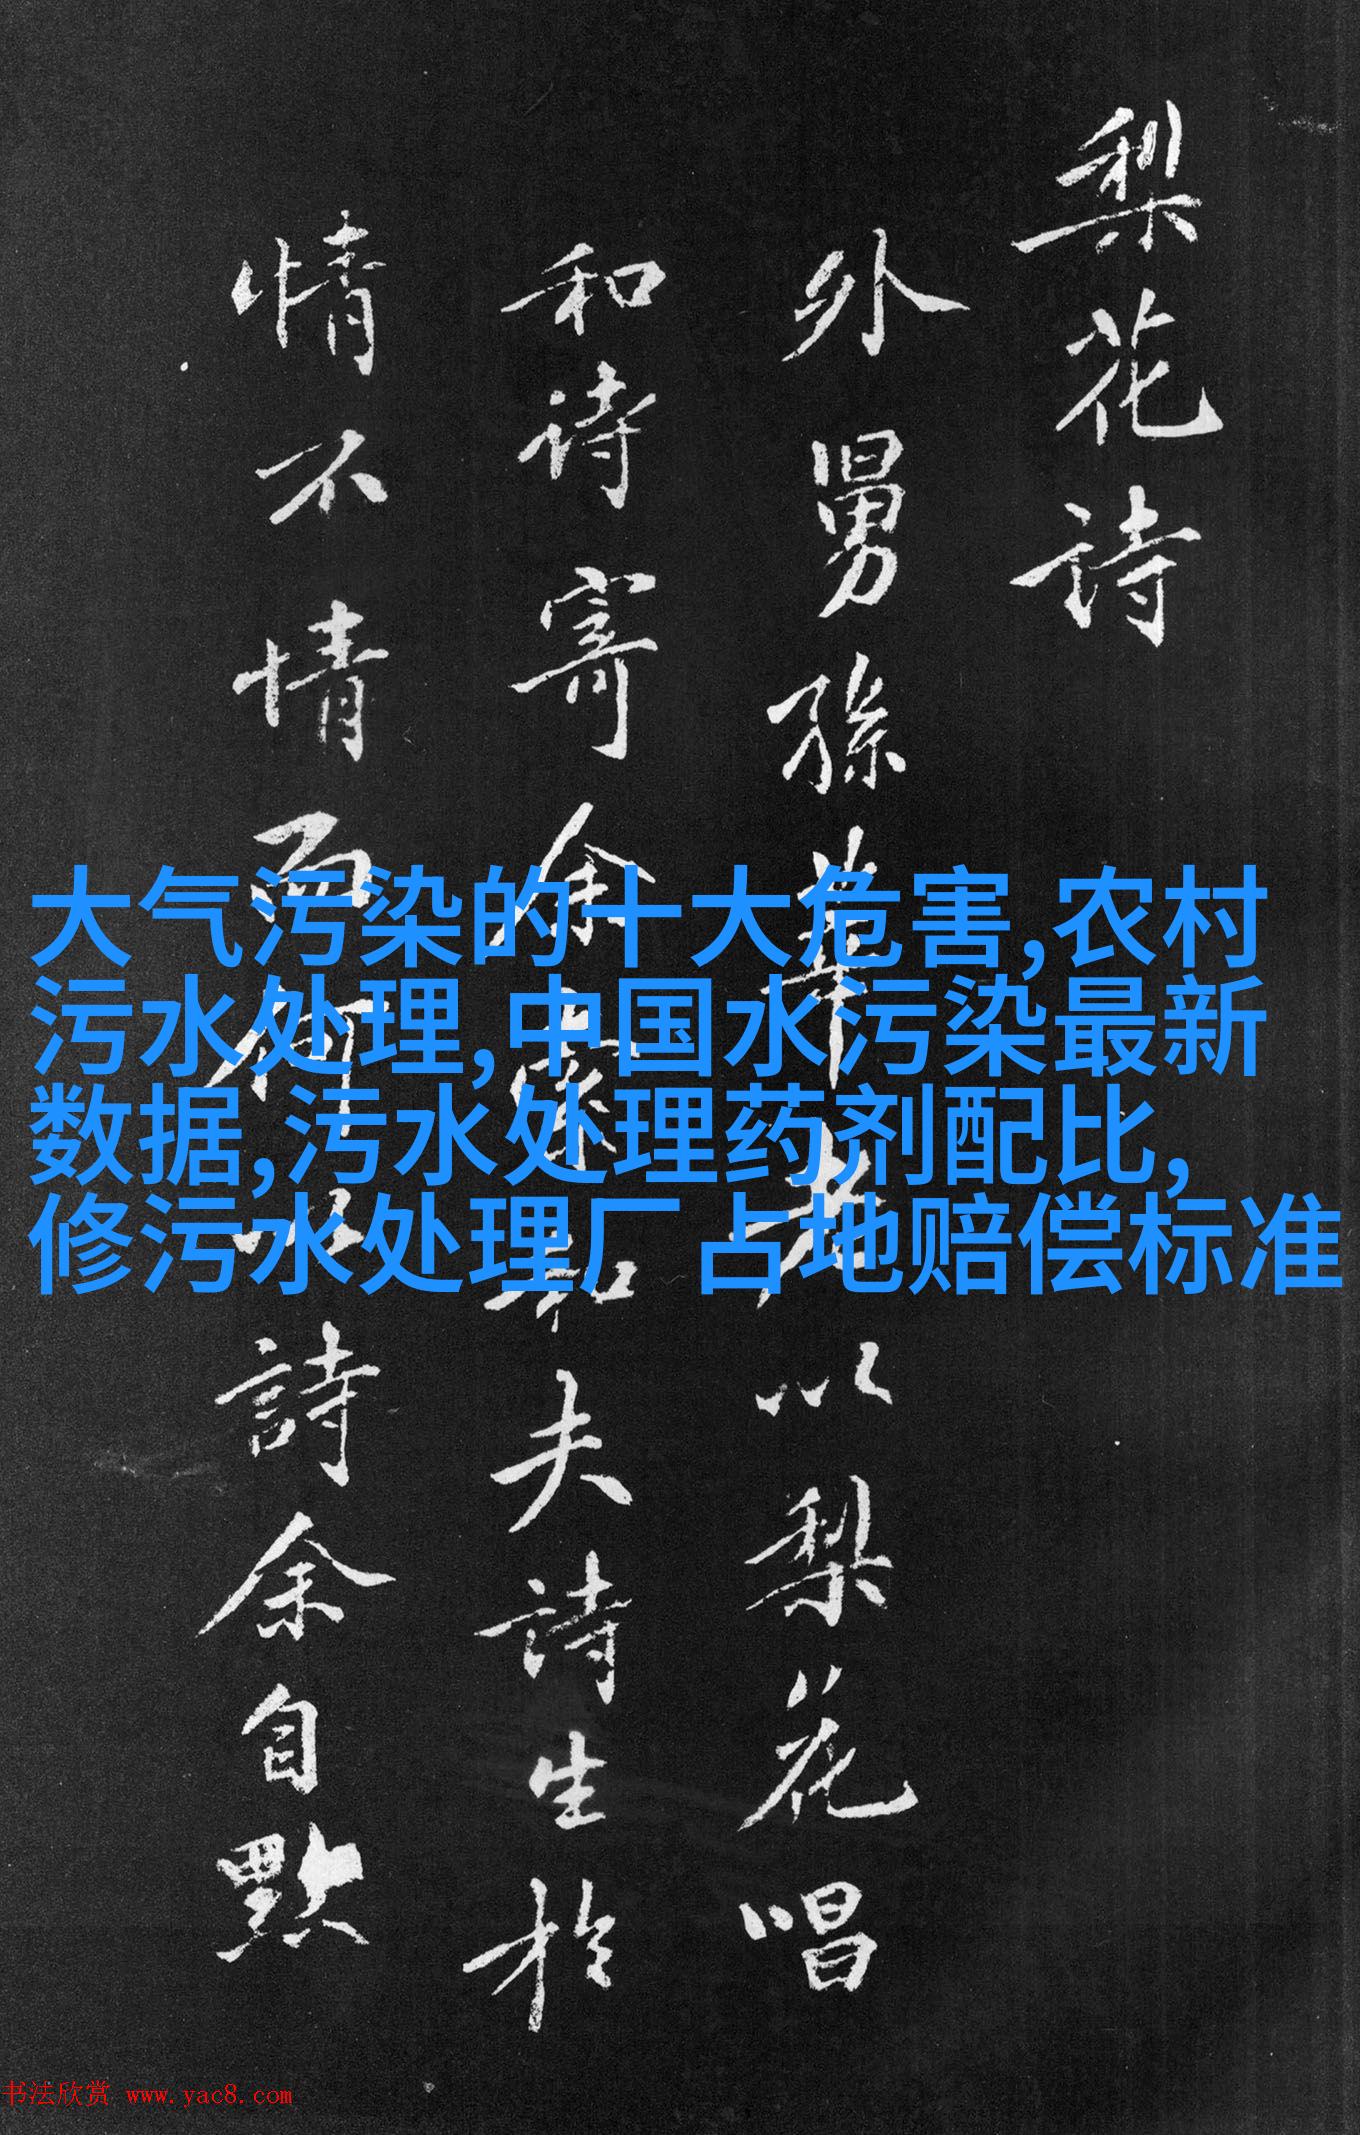 梨花诗
外舅孫華老以梨花唱
和诗寄余索和夫詩生於
情不情而何以詩余自黙
大气污染的十大危害,农村
污水处理,中国水污染最新
数据,污水处理药剂配比,
修污水处理厂占地赔偿标准
书法欣赏 www.yac8.com